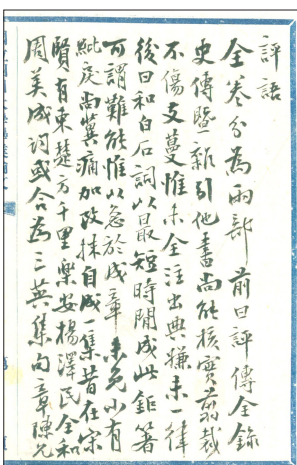 評語
全卷分為兩部前曰評傳全錄
史傳暨一新引他書尚能核實剪裁
不傷支蔓惟未全注出典嫌未一律
後曰和白石詞以最短時間成此鉅著
可謂難能惟以急於成章未免小有
紕戾尚冀痛加改抹自成一集昔在宋
賢有東楚方千里樂安楊澤民全和
周美成詞或合為三英集句章陳允